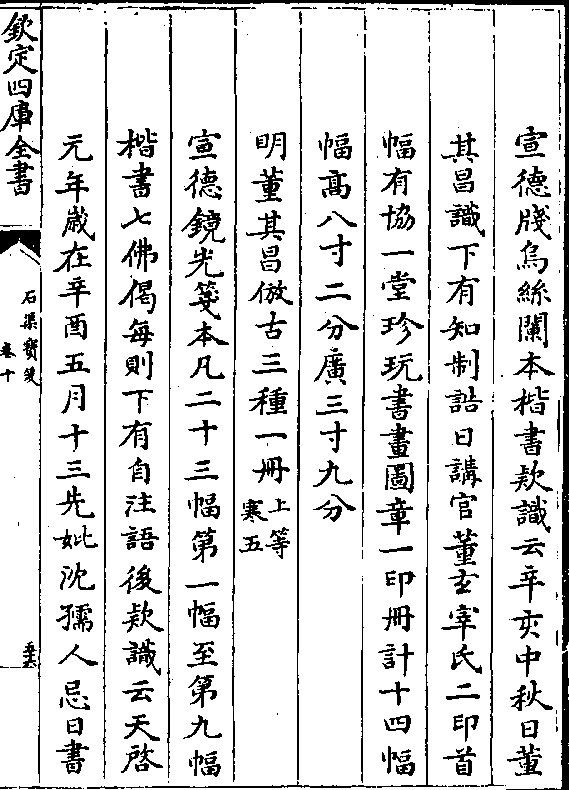 宣德牋烏絲闌本楷書款識云辛亥中秋日董
其昌識下有知制誥日講官董玄宰氏二印首
幅有協一堂珍玩書畫圖章一印冊計十四幅
幅高八寸二分廣三寸九分
明董其昌倣古三種一冊上等
寒五
宣德鏡光箋本凡二十三幅第一幅至第九幅
楷書七佛偈每則下有自注語後款識云天啓
元年嵗在辛酉五月十三先妣沈孺人忌日書
欽定四庫全書
石渠寳笈
卷十